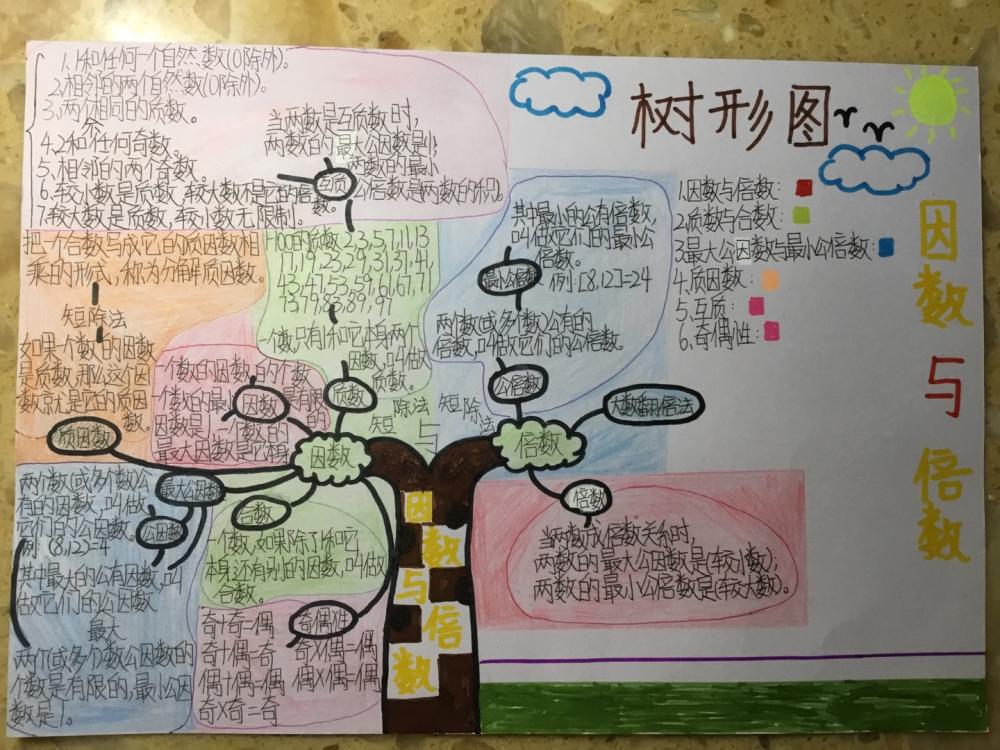 树形图
1.因数与倍数:
2.质数与合数:
3.最大公因数与最小公倍数:
4.质因数:
5.互质:
6.奇偶性:
因数与倍数
1.1和任何一个自然数(0除外)。
2.相邻的两个自然数(0除外)。
3.两个相同的质数。
个
4.2和任何奇数
5.相邻的两个合数。
6.较小数是质数,较大数不是它的倍数。
7.较大数是质数,较小数无限制.
当两数是互质数时,
两数的最大公因数是1;
两数的最小
公倍数是两数的积。
互质
把一个合数与成它的质因数相
乘的形式,称为分解质因数。
短除法
如果个数的因数
是质数,那么这个因
数就是它的质因
数。
质因数
1-100的质数2,3,5,7,11,13
17,19,23,29,31,37,41,
43,47,53,59,61,67,71
73,79,83,89,97
个数只有1和它本身两个
因数,叫做
质数。
质数
一个数的因数的个数
是有限
一个数的最
因数是1,个数的
最大因数是它本身
因数
因数
除法
短
与
短除
法
其中最小的公有倍数,
叫做它们的最小公
倍数。
例:[8,12]=24
最小公倍数
两个数(或多个数)公有的
倍数,叫做它们的公倍数。
公倍数
大数翻倍法
倍数
倍数
当两数成倍数关系时,
两数的最大公因数是(较小数);
两数的最小公倍数是(较大数)。
两个数(或多个数)公
有的因数,叫做
它们的公因数。
例:(8,12)=4
其中最大的公有因数,叫
做它们的公因数
最大
两个(或多个)数公因数的
个数是有限的,最小公因
数是1。
最大公因数
公因数
合数
一个数,如果除了1和它
本身还有别的因数,叫做
合数。
奇偶性
奇+奇=偶
奇+偶=奇 奇×偶=偶
偶+偶=偶 偶×偶=偶
奇×奇=奇
因数与倍数